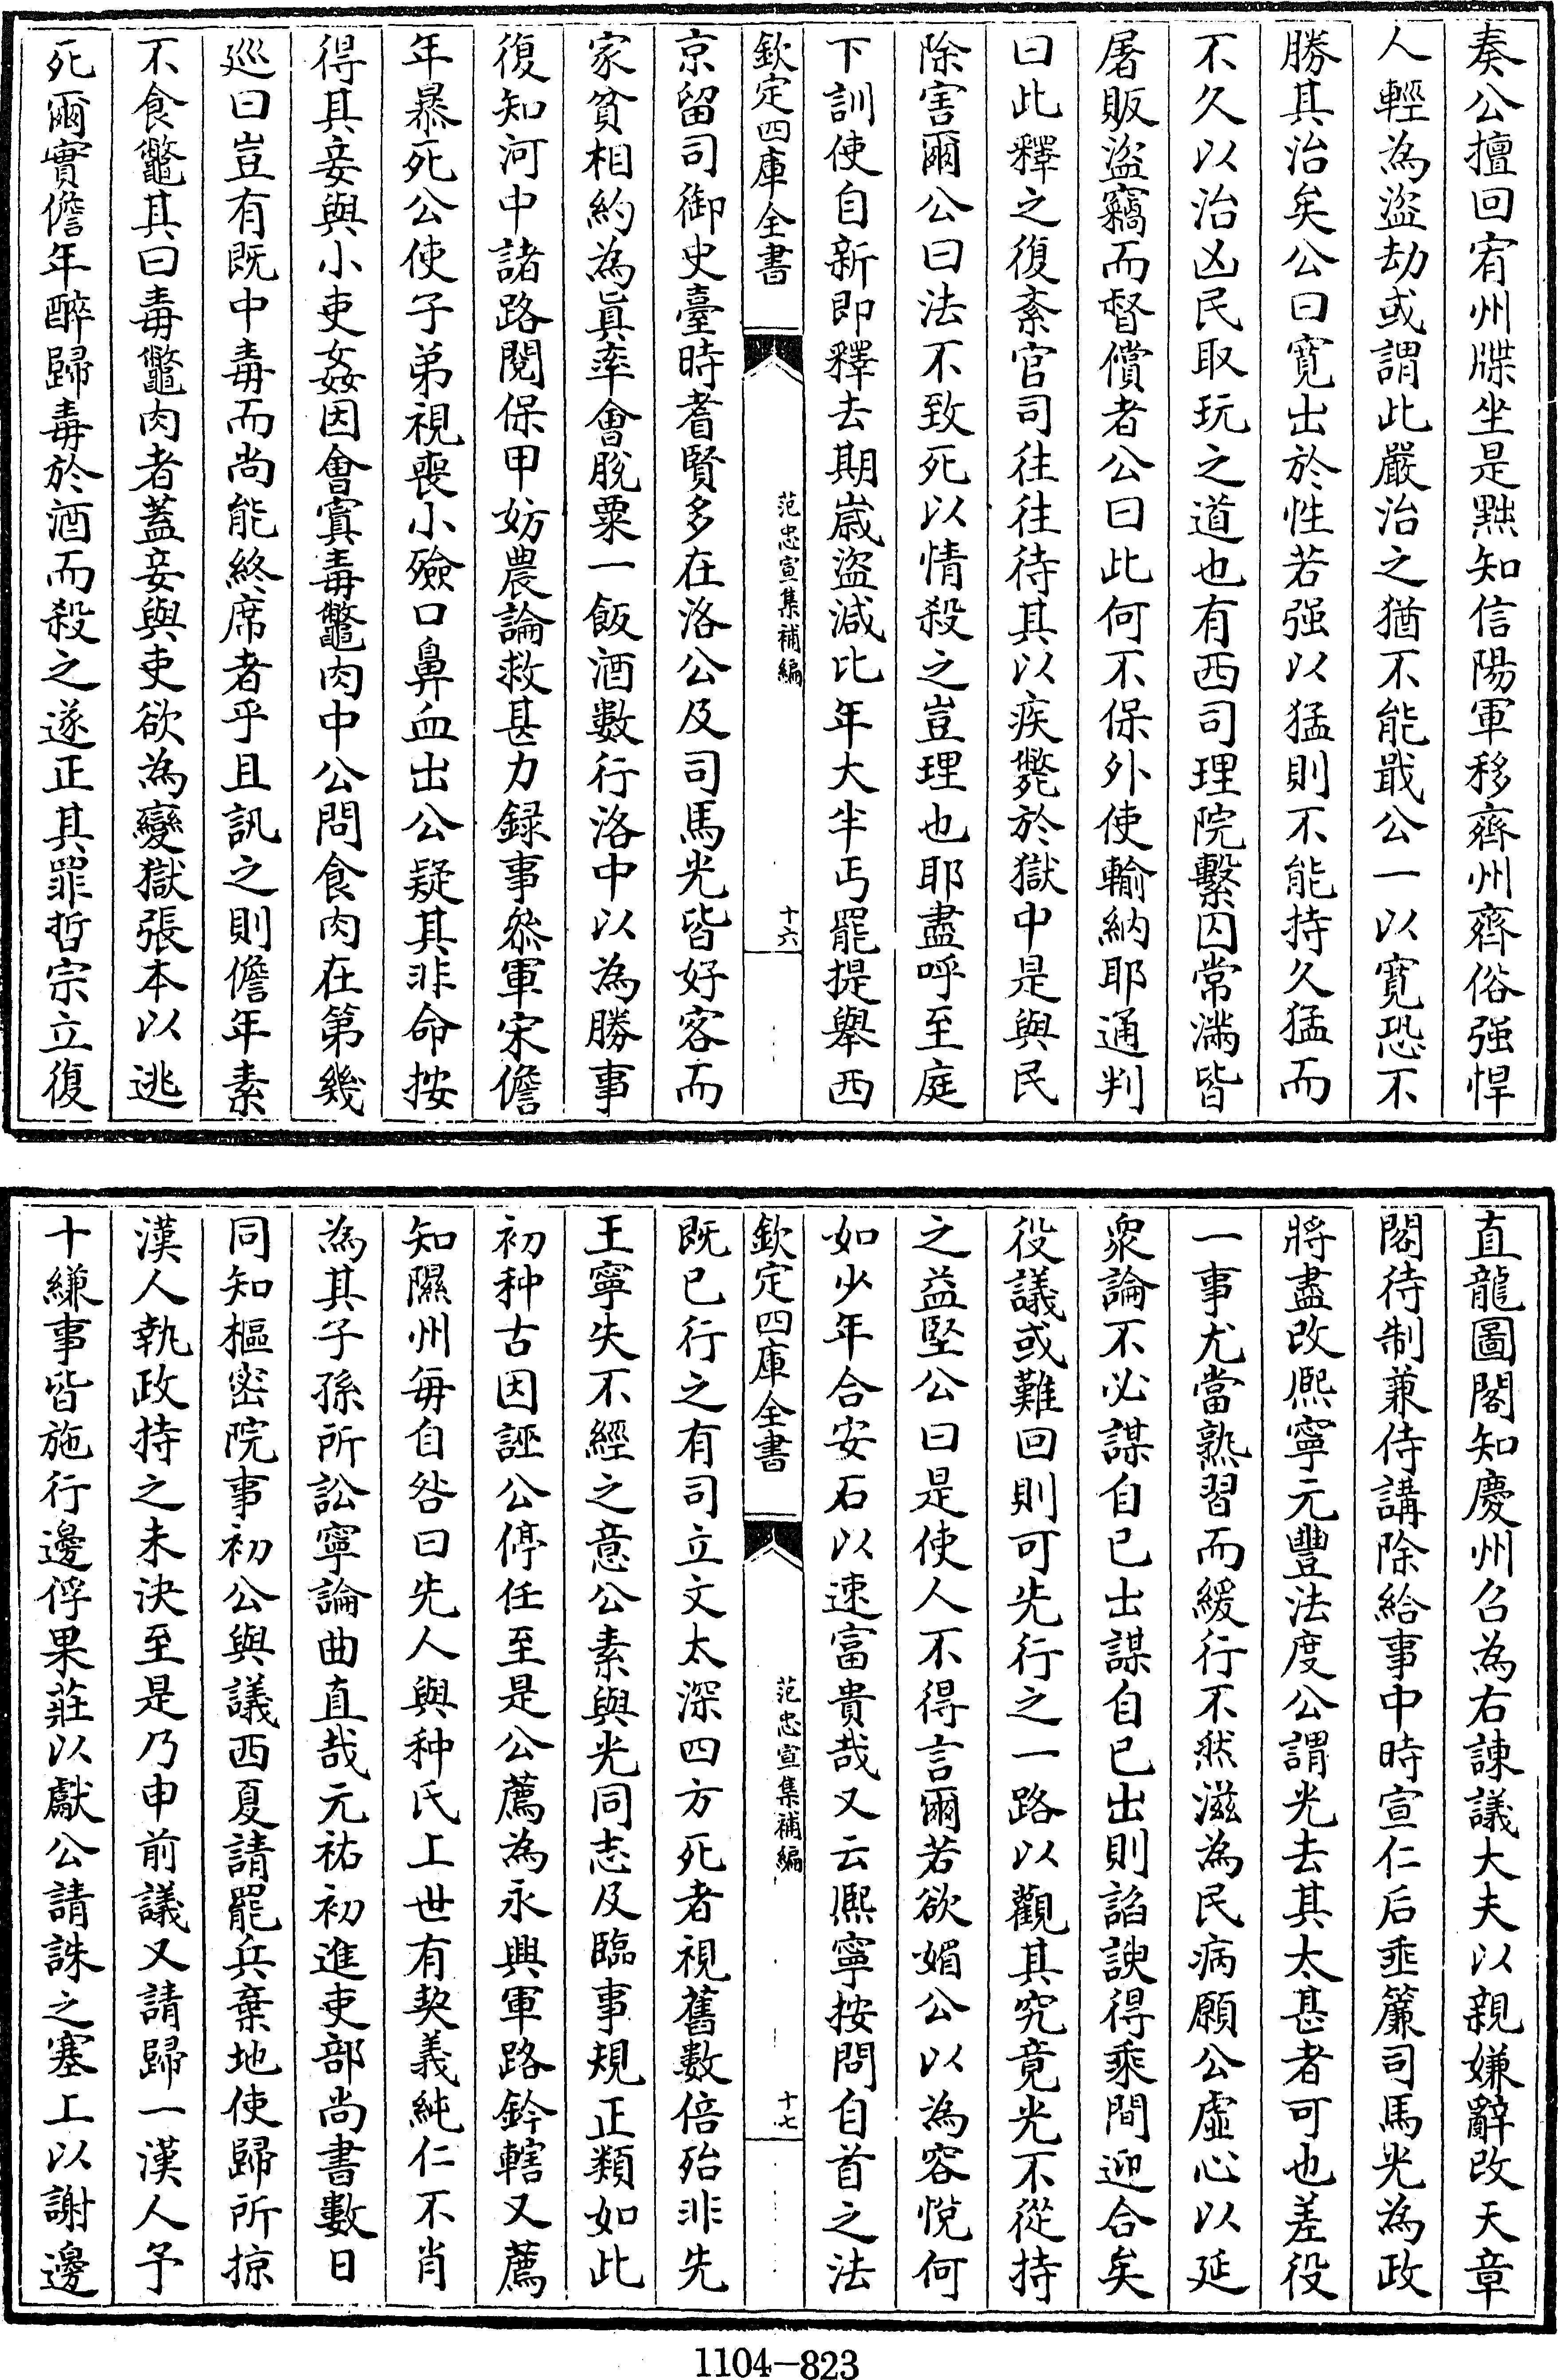 奏公擅回宥州牒坐是黜知信陽軍移齊州齊俗强悍
人輕為盜劫或謂此嚴治之猶不能戢公一以寛恐不
勝其治矣公曰寛出於性若强以猛則不能持久猛而
不久以治凶民取玩之道也有西司理院繫囚常滿皆
屠販盜竊而督償者公曰此何不保外使輸納耶通判
曰此釋之復紊官司往往待其以疾斃於獄中是與民
除害爾公曰法不致死以情殺之豈理也耶盡呼至庭
下訓使自新即釋去期歲盜減比年大半丐罷提舉西
欽定四庫全書
范忠宣集補編
十六
京留司御史臺時耆賢多在洛公及司馬光皆好客而
家貧相約為眞率會脫粟一飯酒數行洛中以為勝事
復知河中諸路閱保甲妨農論救甚力録事叅軍宋儋
年暴死公使子弟視喪小殮口鼻血出公疑其非命按
得其妾與小吏姦因會寘毒鼈肉中公問食肉在第幾
巡曰豈有既中毒而尚能終席者乎且訊之則儋年素
不食鼈其曰毒鼈肉者蓋妾與吏欲為變獄張本以逃
死爾實儋年醉歸毒於酒而殺之遂正其罪哲宗立復
直龍圖閣知慶州召為右諫議大夫以親嫌辭改天章
閣待制兼侍講除給事中時宣仁后垂簾司馬光為政
將盡改熈寧元豐法度公謂光去其太甚者可也差役
一事尤當熟習而緩行不然滋為民病願公虛心以延
衆論不必謀自已出謀自已出則諂諛得乘間迎合矣
役議或難回則可先行之一路以觀其究竟光不從持
之益堅公曰是使人不得言爾若欲媚公以為容悅何
如少年合安石以速富貴哉又云熈寧按問自首之法
欽定四庫全書
范忠宣集補編
十七
既已行之有司立文太深四方死者視舊數倍殆非先
王寧失不經之意公素與光同志及臨事規正類如此
初种古因誣公停任至是公薦為永興軍路鈐轄又薦
知隰州每自咎曰先人與种氏上世有契義純仁不肖
為其子孫所訟寧論曲直哉元祐初進吏部尚書數日
同知樞密院事初公與議西夏請罷兵棄地使歸所掠
漢人執政持之未決至是乃申前議又請歸一漢人予
十縑事皆施行邊俘果莊以獻公請誅之塞上以謝邊
1104—823